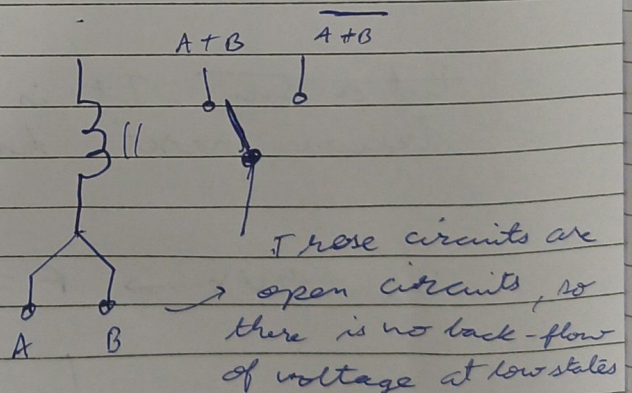 A + B
A̅ ̅+̅ ̅B̅
A
B
These circuits are
open circuits, so
there is no back-flow
of voltage at low states